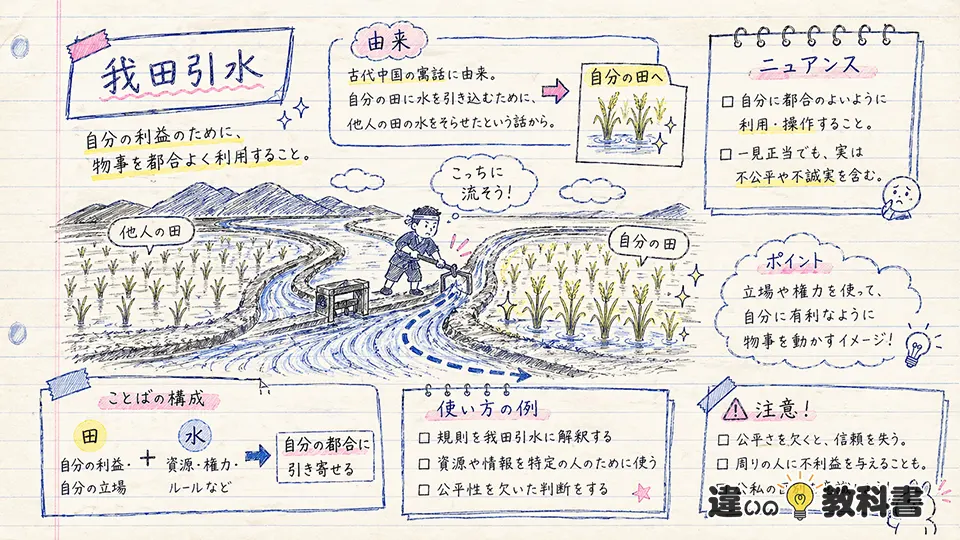 我田引水
自分の利益のために、
物事を都合よく利用すること。
由来
古代中国の寓話に由来。
自分の田に水を引き込むために、
他人の田の水をそらせたという話から。
自分の田へ
ニュアンス
自分に都合のよいように
利用・操作すること。
一見正当でも、実は
不公平や不誠実を含む。
こっちに
流そう!
他人の田
自分の田
ポイント
立場や権力を使って、
自分に有利なように
物事を動かすイメージ!
ことばの構成
田
自分の利益・
自分の立場
+
水
資源・権力・
ルールなど
自分の都合に
引き寄せる
使い方の例
規則を我田引水に解釈する
資源や情報を特定の人のために使う
公平性を欠いた判断をする
注意!
公平さを欠くと、信頼を失う。
周りの人に不利益を与えることも。
公私の
違いの教科書